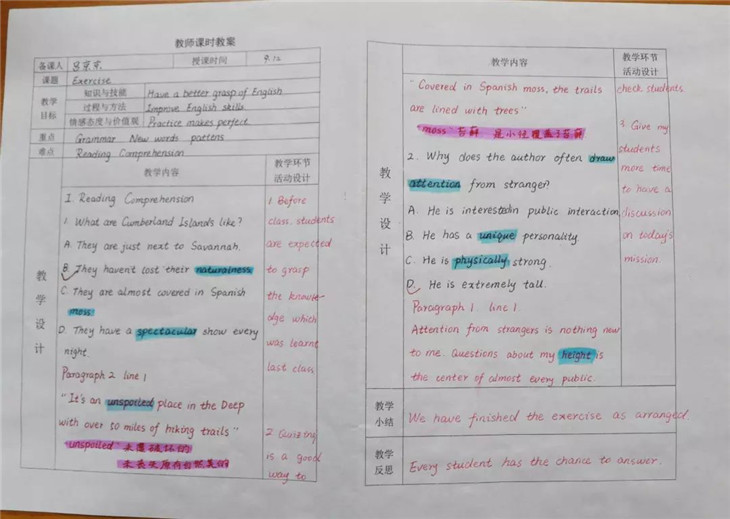 教师课时教案
备课人 吕京京 授课时间 9.12
课题 Exercise
教学目标 知识与技能 Have a better grasp of English
过程与方法 Improve English skills.
情感态度与价值观 Practice makes perfect
重点 Grammar New words pattens
难点 Reading Comprehension
教学内容 教学环节活动设计
教学设计
I. Reading Comprehension
1. What are Cumberland Islands like?
A. They are just next to Savannah.
B. They haven't lost their naturalness
C. They are almost covered in Spanish
moss
D. They have a spectacular show every
night.
Paragraph 2 line 1
"It's an unspoiled place in the Deep
with over 50 miles of hiking trails"
unspoiled 未遭破坏的
未丧失原有自然美的
1 Before
class, students
are expected
to grasp
the knowle-
dge which
was learnt
last class
2 Quizing
is a good
way to
教学内容 教学环节活动设计
教学设计
"Covered in Spanish moss, the trails
are lined with trees"
moss 苔藓 是小径覆盖苔藓
2. Why does the author often draw
attention from stranger?
A. He is interestedin public interaction
B. He has a unique personality
C. He is physically strong.
D. He is extremely tall.
Paragraph 1 line 1.
Attention from strangers is nothing new
to me. Questions about my height is
the center of almost every public.
check students
3. Give my
students
more time
to have a
discussion
on today's
mission.
教学小结 We have finished the exercise as arranged.
教学反思 Every student has the chance to answer.